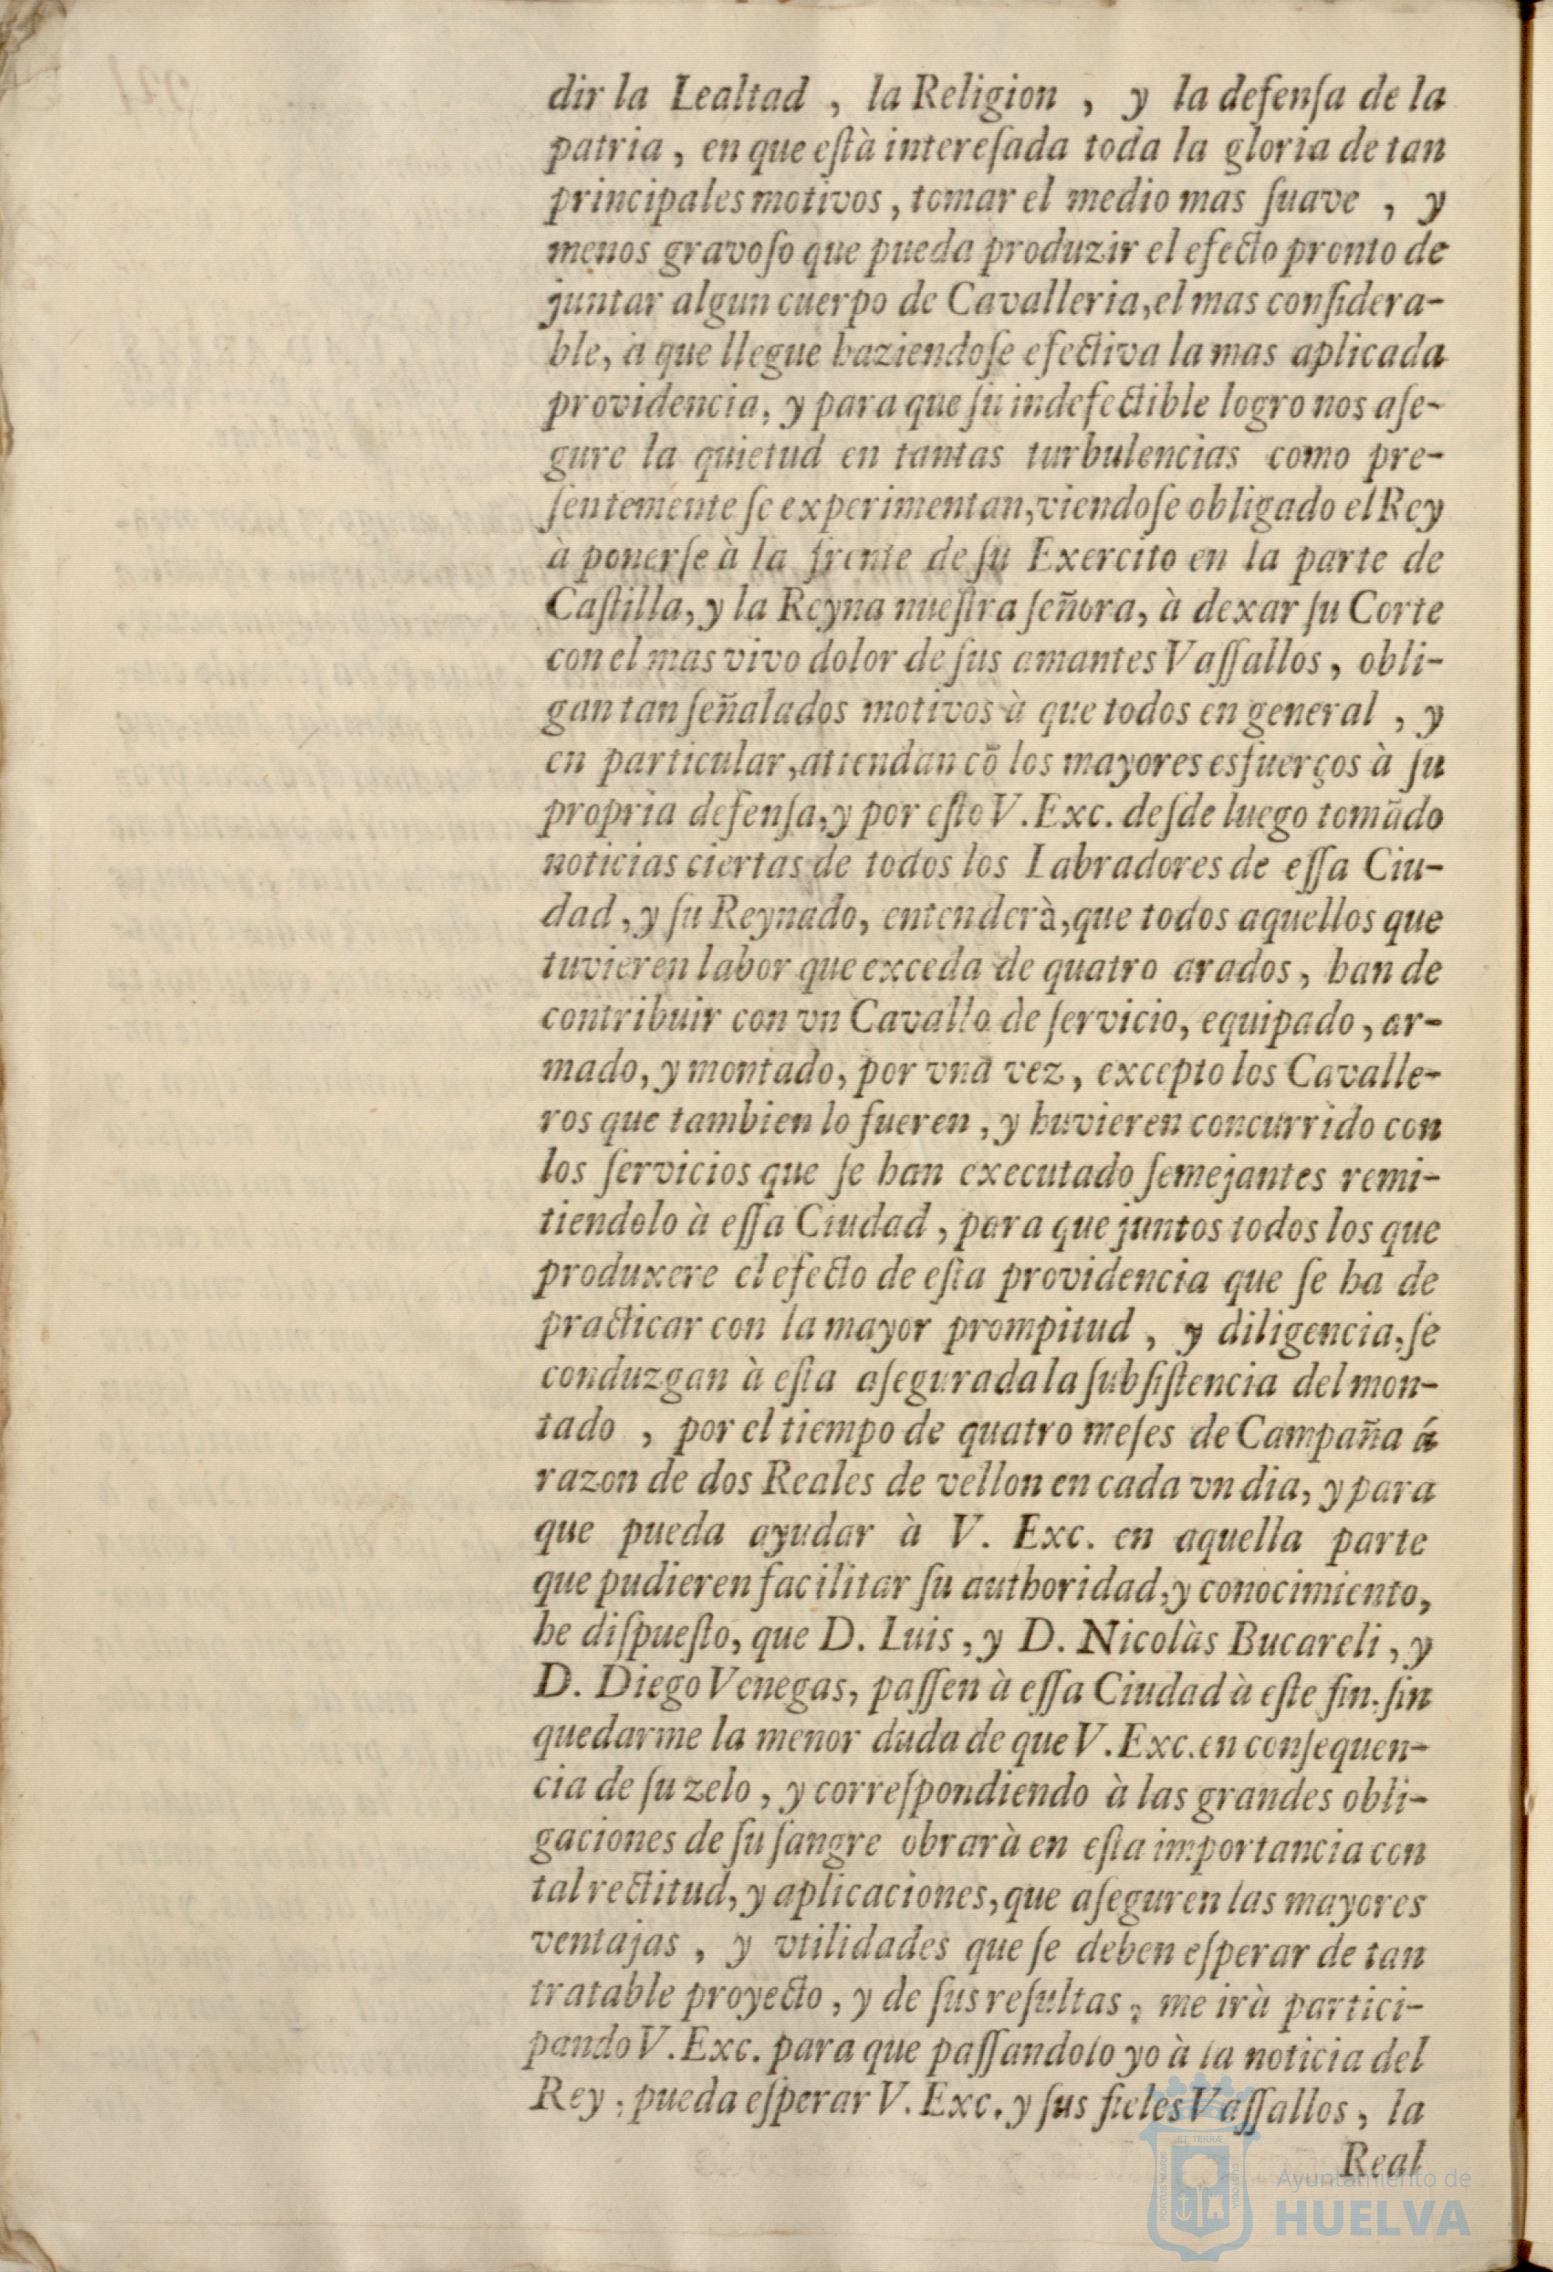 dir la Lealtad , la Religion , y la defenſa de la
patria , en que eſtà intereſada toda la gloria de tan
principales motivos , tomar el medio mas ſuave , y
menos gravoſo que pueda produzir el efecto pronto de
juntar algun cuerpo de Cavalleria, el mas conſidera-
ble, à que llegue haziendoſe efectiva la mas aplicada
providencia, y para que ſu indefectible logro nos aſe-
gure la quietud en tantas turbulencias como pre-
ſentemente ſe experimentan, viendoſe obligado el Rey
à ponerſe à la frente de ſu Exercito en la parte de
Caſtilla, y la Reyna nueſtra ſeñora, à dexar ſu Corte
con el mas vivo dolor de ſus amantes Vaſſallos , obli-
gan tan ſeñalados motivos à que todos en general , y
en particular, atiendan cõ los mayores esfuerços à ſu
propria defenſa, y por eſto V. Exc. deſde luego tomãdo
noticias ciertas de todos los Labradores de eſſa Ciu-
dad , y ſu Reynado, entenderà, que todos aquellos que
tuvieren labor que exceda de quatro arados , han de
contribuir con vn Cavallo de ſervicio, equipado , ar-
mado, y montado, por vna vez, excepto los Cavalle-
ros que tambien lo fueren , y huvieren concurrido con
los ſervicios que ſe han executado ſemejantes remi-
tiendolo à eſſa Ciudad , para que juntos todos los que
produxere el efecto de eſta providencia que ſe ha de
practicar con la mayor prompitud , y diligencia, ſe
conduzgan à eſta aſegurada la ſubſiſtencia del mon-
tado , por el tiempo de quatro meſes de Campaña á
razon de dos Reales de vellon en cada vn dia, y para
que pueda ayudar à V. Exc. en aquella parte
que pudieren facilitar ſu authoridad, y conocimiento,
he diſpueſto, que D. Luis , y D. Nicolàs Bucareli , y
D. Diego Venegas, paſſen à eſſa Ciudad à eſte fin. ſin
quedarme la menor duda de que V. Exc. en conſequen-
cia de ſu zelo , y correſpondiendo à las grandes obli-
gaciones de ſu ſangre obrarà en eſta importancia con
tal rectitud, y aplicaciones, que aſeguren las mayores
ventajas , y vtilidades que ſe deben eſperar de tan
tratable proyecto , y de ſus reſultas , me irà partici-
pando V. Exc. para que paſſandolo yo à la noticia del
Rey , pueda eſperar V. Exc. y ſus fieles Vaſſallos , la
Real
Ayuntamiento de
HUELVA